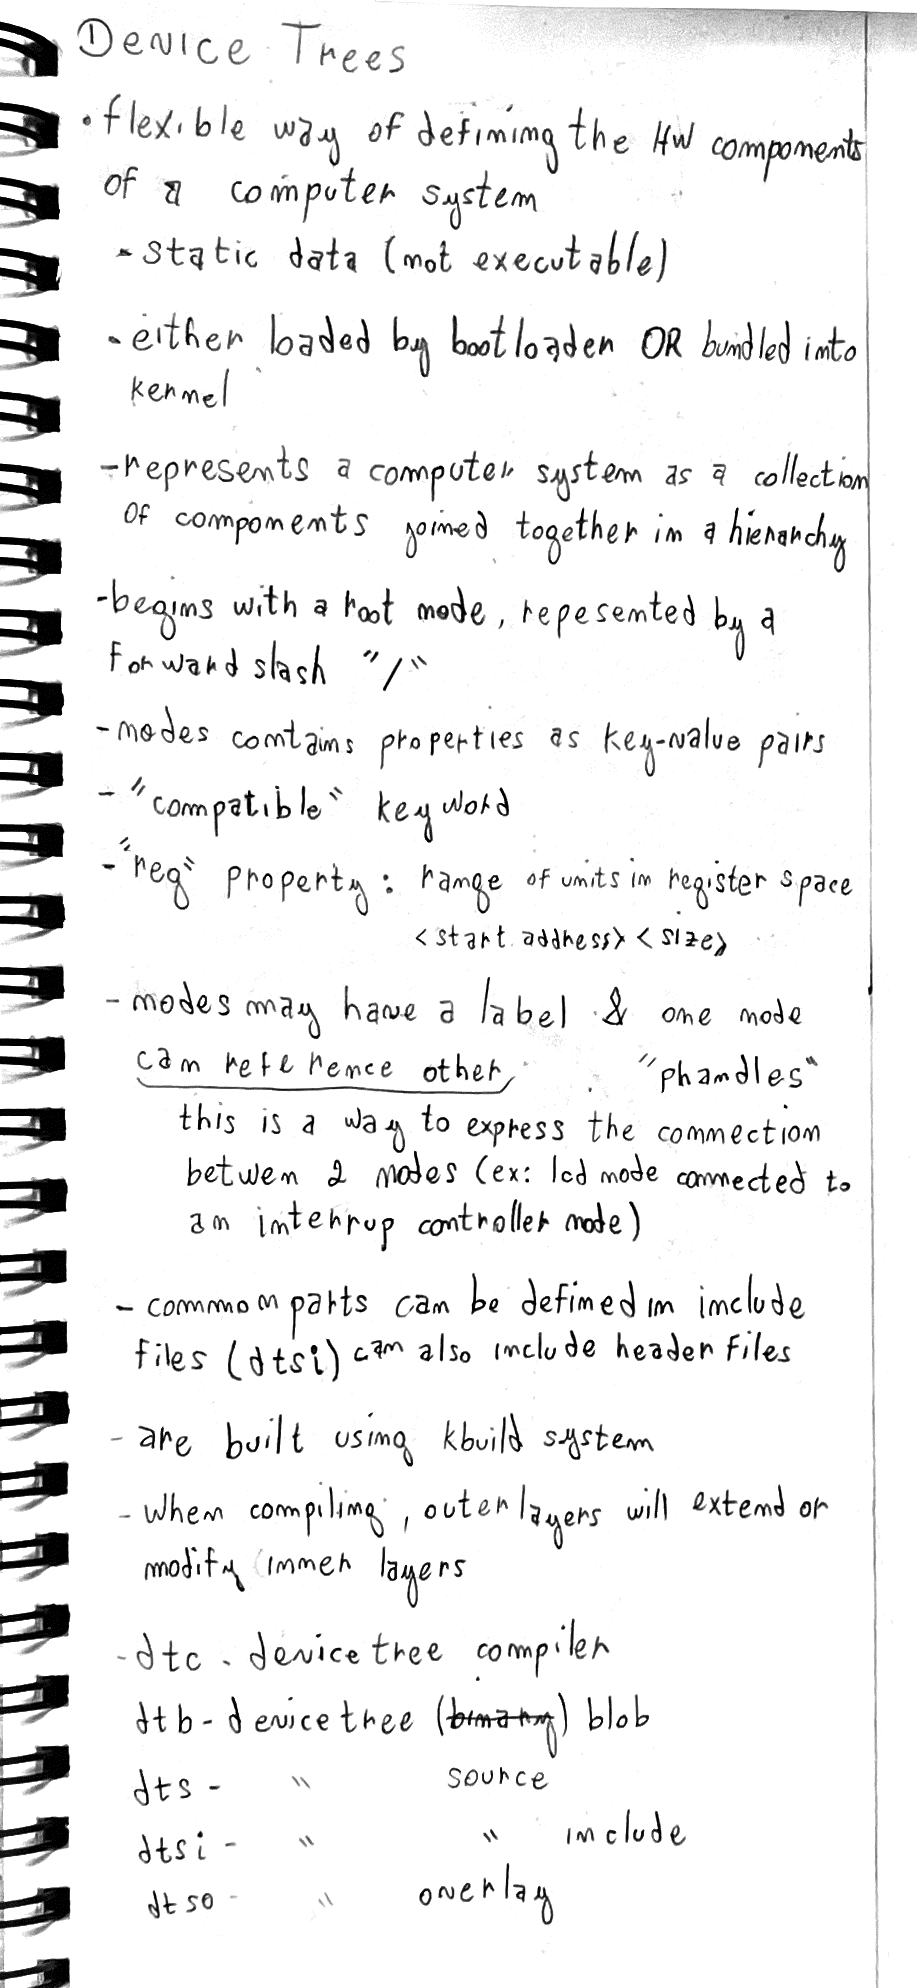 ① Device Trees
• flexible way of defining the HW components
of a computer system
- static data (not executable)
- either loaded by bootloader OR bundled into
kernel
- represents a computer system as a collection
of components joined together in a hierarchy
- begins with a root node, repesented by a
forward slash "/"
- nodes contains properties as key-value pairs
- "compatible" keyword
- "reg" property: range of units in register space
<start address> <size>
- nodes may have a label & one node
can reference other "phandles"
this is a way to express the connection
betwen 2 nodes (ex: lcd node connected to
an interrup controller node)
- common parts can be defined in include
files (dtsi) can also include header files
- are built using kbuild system
- when compiling, outer layers will extend or
modify inner layers
- dtc - device tree compiler
dtb - device tree (binary) blob
dts - " source
dtsi - " " include
dtso - " overlay